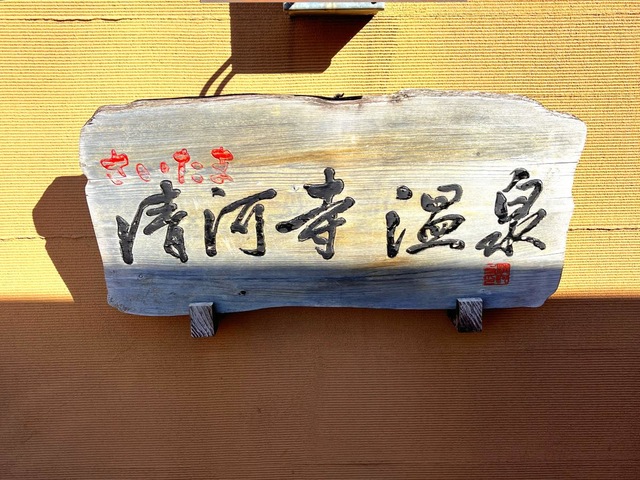 さいたま
清河寺温泉